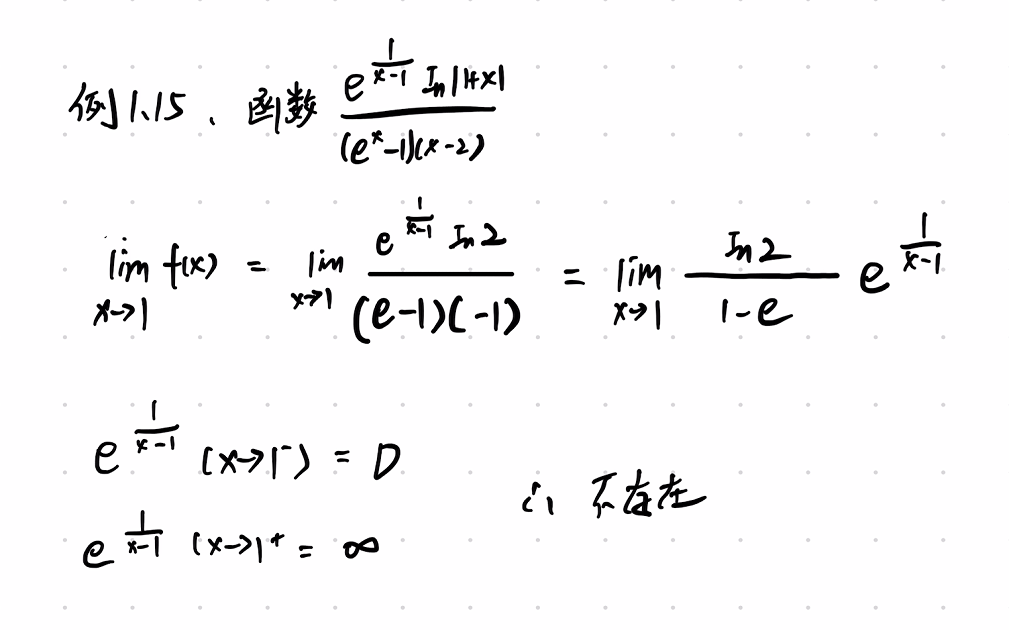 例1.15、函数 \frac{e^{\frac{1}{x-1}} In|1+x|}{(e^x-1)(x-2)}
\lim_{x→1} f(x) = \lim_{x→1} \frac{e^{\frac{1}{x-1}} In2}{(e-1)(-1)} = \lim_{x→1} \frac{In2}{1-e} e^{\frac{1}{x-1}}
e^{\frac{1}{x-1}} (x→1^-) = 0
∴ 不存在
e^{\frac{1}{x-1}} (x→1^+ = ∞